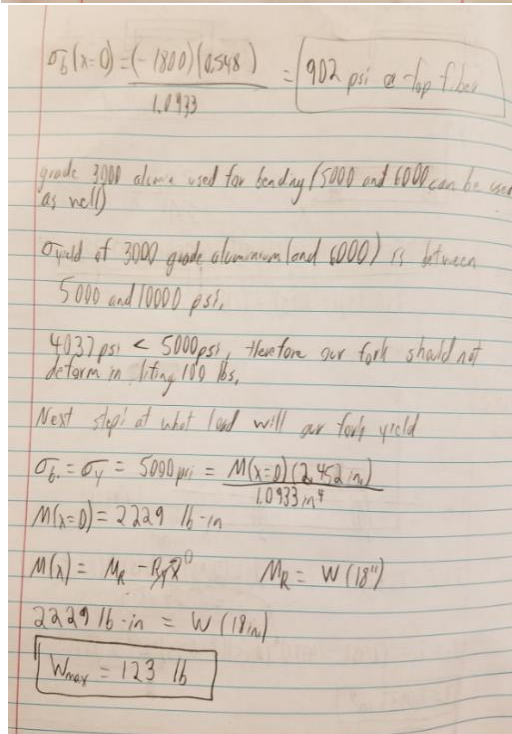 σb(x=0) = (-1800)(0.548) / 1.0933 = 902 psi @ top fiber
grade 3000 used for bending (5000 and 6000 can be used
as well)
σyield of 3000 grade aluminium (and 6000) is between
5000 and 10000 psi.
4037 psi < 5000 psi, therefore our fork should not
deform in lifting 100 lbs.
Next step: at what load will our fork yield
σb = σy = 5000 psi = M(x=0)(2.452 in) / 1.0933 in⁴
M(x=0) = 2229 lb-in
M(x) = MR - RyX⁰ MR = W(18")
2229 lb-in = W(18in)
Wmax = 123 lb